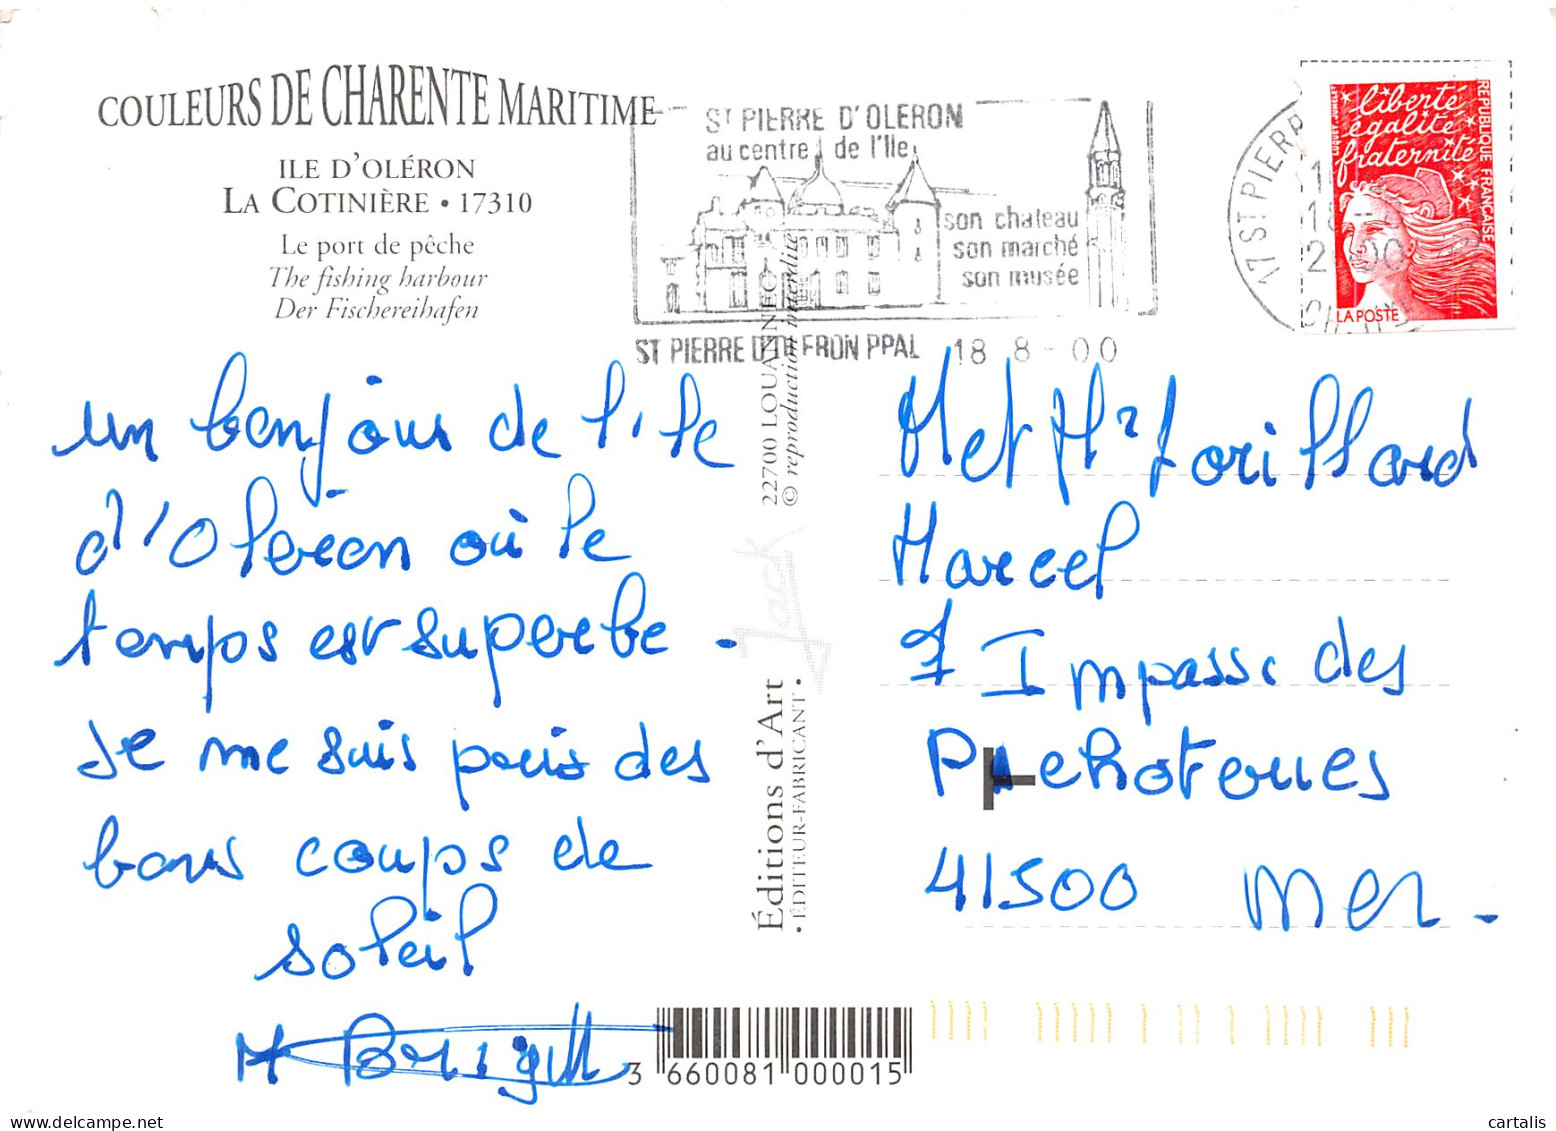 COULEURS DE CHARENTE MARITIME
ILE D'OLÉRON
LA COTINIÈRE • 17310
Le port de pêche
The fishing harbour
Der Fischereihafen
ST PIERRE D'OLERON
au centre de l'Ile
son chateau
son marché
son musée
ST PIERRE D'OLERON PPAL 18 8 - 00
17 ST PIERR
liberté
égalité
fraternité
REPUBLIQUE FRANÇAISE
LA POSTE
un bonjour de l'ile
d'Oleron où le
temps est superbe -
Je me suis pris des
bons coups de
soleil
22700 LOUANNEC
© reproduction interdite
Jack
Éditions d'Art
• ÉDITEUR-FABRICANT •
M et Mr Lorillard
Marcel
7 Impasse des
41500 Mer -
3 660081 000015
cartalis